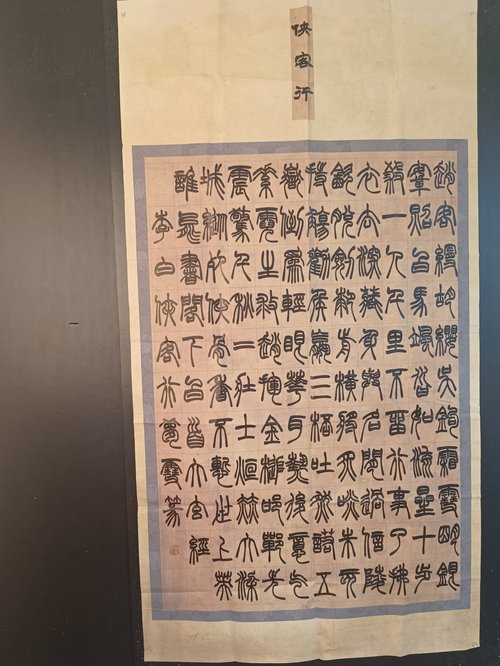 俠客行
趙客縵胡纓吳鉤霜雪明銀
鞍照白馬颯沓如流星十步
殺一人千里不留行事了拂
衣去深藏身與名閒過信陵
飲脫劍膝前橫將炙啖朱亥
持觴勸侯嬴三杯吐然諾五
嶽倒為輕眼花耳熱後意气
素霓生救趙揮金槌邯鄲先
震驚千秋二壯士烜赫大梁
城縱死俠骨香不慙世上英
誰能書閣下白首太玄經
李白俠客行 雪篆